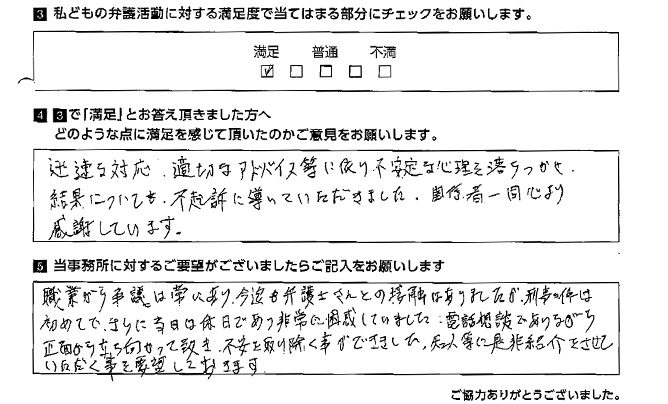 3 私どもの弁護活動に対する満足度で当てはまる部分にチェックをお願いします。
満足 普通 不満
4 3で「満足」とお答え頂きました方へ
どのような点に満足を感じて頂いたのかご意見をお願いします。
迅速な対応、適切なアドバイス等に依り不安定な心理を落ちつかせ、
結果についても、不起訴に導いていただきました。関係者一同心より
感謝しています。
5 当事務所に対するご要望がございましたらご記入をお願いします
職業がら争議は常にあり、今迄も弁護士さんとの接触はありましたが、刑事の件は
初めてで、さらに当日は休日であり非常に困惑していました。電話相談でありながら
正面から立ち向かって頂き、不安を取り除く事ができました。知人等に是非紹介をさせて
いただく事を要望しております
ご協力ありがとうございました。